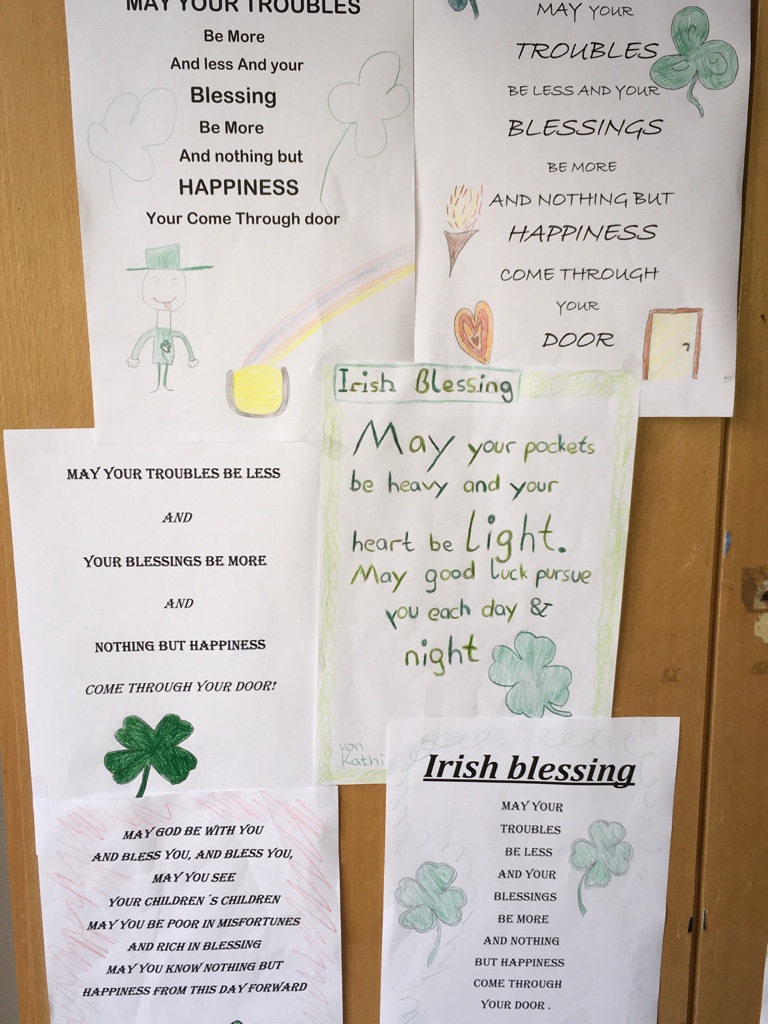 MAY YOUR TROUBLES
Be More
And less And your
Blessing
Be More
And nothing but
HAPPINESS
Your Come Through door
MAY YOUR
TROUBLES
BE LESS AND YOUR
BLESSINGS
BE MORE
AND NOTHING BUT
HAPPINESS
COME THROUGH
YOUR
DOOR
MAY YOUR TROUBLES BE LESS
AND
YOUR BLESSINGS BE MORE
AND
NOTHING BUT HAPPINESS
COME THROUGH YOUR DOOR!
Irish Blessing
May your pockets
be heavy and your
heart be Light.
May good luck pursue
you each day &
night
von
Kathi
MAY GOD BE WITH YOU
AND BLESS YOU, AND BLESS YOU,
MAY YOU SEE
YOUR CHILDREN ´S CHILDREN
MAY YOU BE POOR IN MISFORTUNES
AND RICH IN BLESSING
MAY YOU KNOW NOTHING BUT
HAPPINESS FROM THIS DAY FORWARD
Irish blessing
MAY YOUR
TROUBLES
BE LESS
AND YOUR
BLESSINGS
BE MORE
AND NOTHING
BUT HAPPINESS
COME THROUGH
YOUR DOOR .